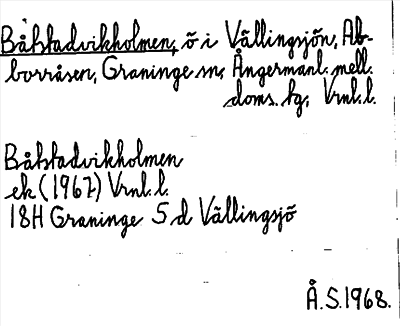 Båtstadvikholmen, ö i Vällingsjön, Ab-
borråsen, Graninge sn, Ångermanl. mell.
doms. tg, Vrnl. l.
Båtstadvikholmen
ek (1967) Vrnl. l.
18H Graninge 5 d Vällingsjö
Å.S. 1968.